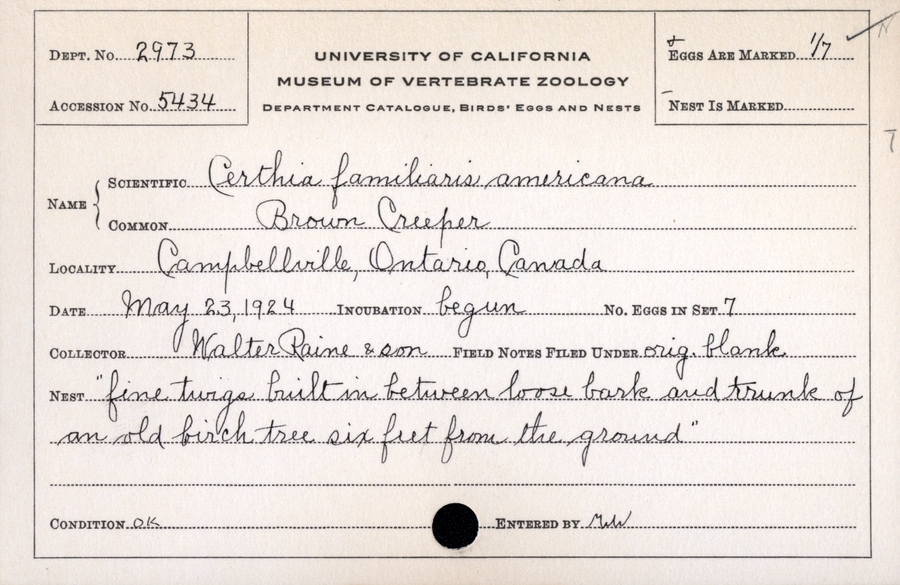 DEPT. NO. 2973
ACCESSION NO. 5434
UNIVERSITY OF CALIFORNIA
MUSEUM OF VERTEBRATE ZOOLOGY
DEPARTMENT CATALOGUE, BIRDS' EGGS AND NESTS
EGGS ARE MARKED 1/7
NEST IS MARKED
NAME
SCIENTIFIC Certhia familiaris americana
COMMON Brown Creeper
LOCALITY Campbellville, Ontario, Canada
DATE May 23, 1924 INCUBATION begun NO. EGGS IN SET 7
COLLECTOR Walter Raine & son FIELD NOTES FILED UNDER orig. blank
NEST "fine twigs built in between loose bark and trunk of
an old birch tree six feet from the ground"
CONDITION OK ENTERED BY